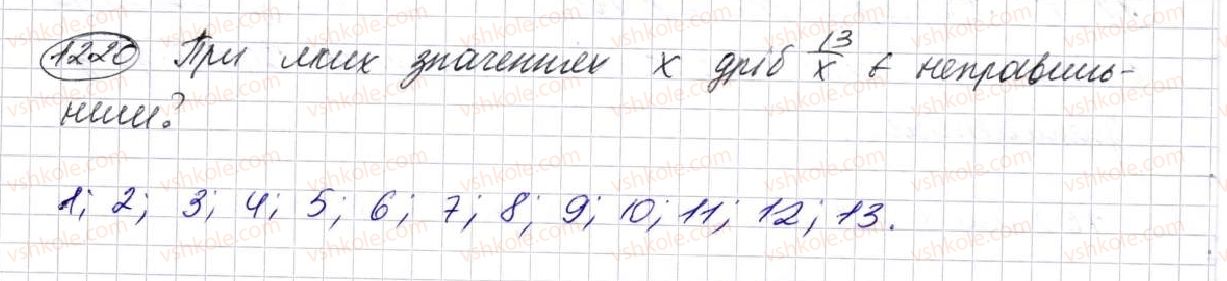 1220 При яких значеннях x дріб 13/x є неправиль-
ним?
1; 2; 3; 4; 5; 6; 7; 8; 9; 10; 11; 12; 13.